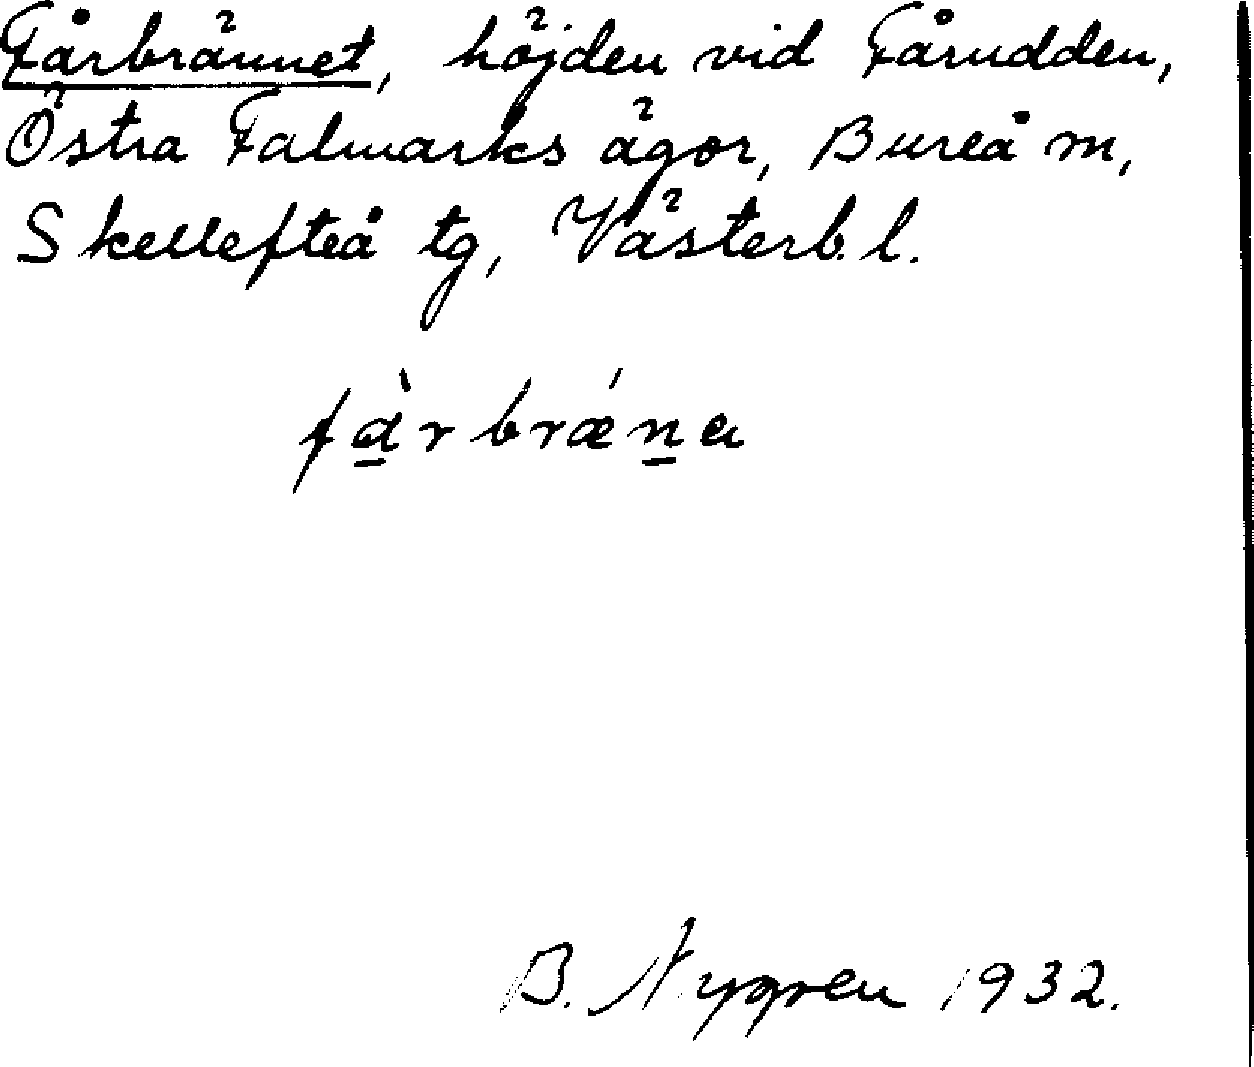 Fårbrännet, höjden vid Fårudden,
Östra Falmarks ägor, Bureå m,
Skellefteå tg, Västerb. l.
fà̱rbrǽṉa
B. Nygren 1932.